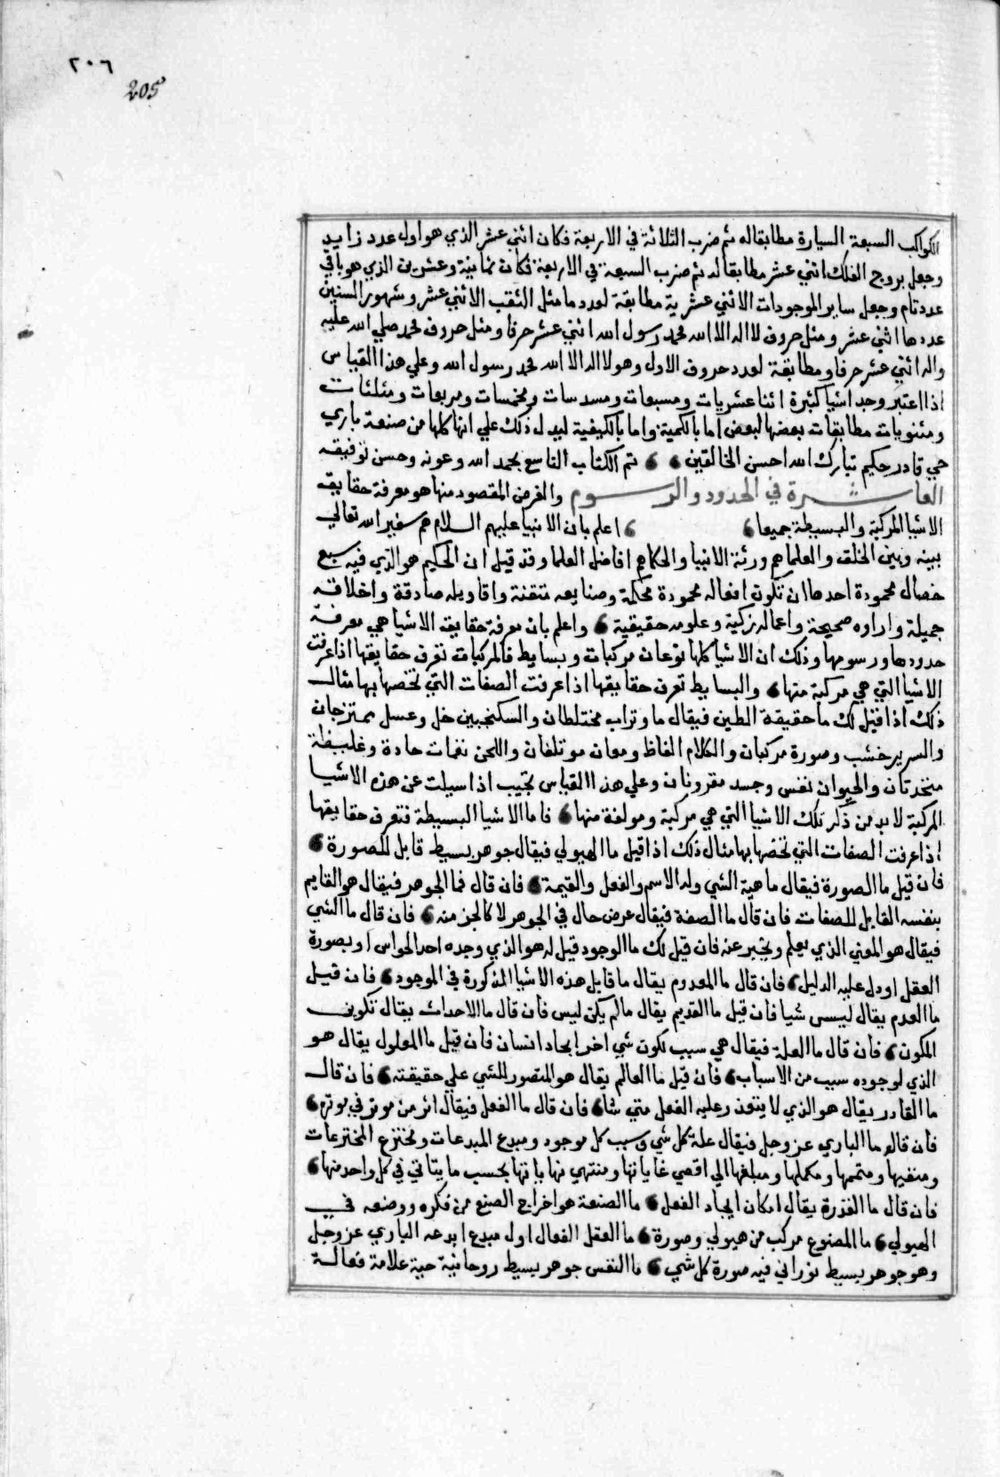 ٢٠٦
205
الكواكب السبعة السيارة مطابقا له ثم ضرب الثلاثة في الاربعة فكان اثني عشر الذي هو اول عدد زايد
وجعل بروج الفلك اثني عشر مطابقا له ثم ضرب السبعة في الاربعة فكان ثمانية وعشرين الذي هو باقي
عدد تام وجعل ساير الموجودات الاثني عشرية مطابقة لعدد ما مثل الثقب الاثني عشر وشهور السنين
عددها اثني عشر ومثل حروف لا اله الا الله محمد رسول الله اثني عشر حرفا ومثل حروف محمد صلي الله عليه
واله اثني عشر حرفا ومطابقة لعدد حروف الاول وهو لا اله الا الله محمد رسول الله وعلي هذا القياس
اذا اعتبر وجد اشيا كثيرة اثنا عشريات ومسبعات ومسدسات ومخمسات ومربعات ومثلثات
ومثنويات مطابقات بعضها لبعض اما بالكمية واما بالكيفية ليدل ذلك علي انها كلها من صنعة باري
حي قادر حكيم تبارك الله احسن الخالقين تم الكتاب التاسع بحمد الله وعونه وحسن توفيقه
العاشرة في الحدود والرسوم والغرض المقصود منها هو معرفة حقايق
الاشيا المركبة والبسيطة جميعا اعلم بان الانبيا عليهم السلام هم سفير الله تعالي
بينه وبين الخلق والعلما هم ورثة الانبيا والحكما هم افاضل العلما وقد قيل ان الحكيم هو الذي فيه سبع
خصال محمودة احدها ان تكون افعاله محمودة محكمة وصنايعه متقنة واقاويله صادقة واخلاقه
جميلة واراوه صحيحة واعماله زكية وعلومه حقيقية واعلم بان معرفة حقايق الاشيا هي معرفة
حدودها ورسومها وذلك ان الاشيا كلها نوعان مركبات وبسايط فالمركبات تعرف حقايقها اذا عرفت
الاشيا التي هي مركبة منها والبسايط تعرف حقايقها اذا عرفت الصفات التي تخصها بها مثال
ذلك اذا قيل لك ما حقيقة الطين فيقال ما وتراب مختلطان والسكنجبين خل وعسل ممتزجان
والسرير خشب وصورة مركبان والكلام الفاظ ومعان موتلفان واللحن نغمات حادة وغليظة
متحدتان والحيوان نفس وجسد مقرونان وعلي هذا القياس تجيب اذا سيلت عن هذه الاشيا
المركبة لا بد من ذكر تلك الاشيا التي هي مركبة ومولفة منها فاما الاشيا البسيطة فتعرف حقايقها
اذا عرفت الصفات التي تخصها بها مثال ذلك اذا قيل ما الهيولي فيقال جوهر بسيط قابل للصورة
فان قيل ما الصورة فيقال ماهية الشي وله الاسم والفعل والقيمة فان قال فما الجوهر فيقال هو القايم
بنفسه القابل للصفات فان قال ما الصفة فيقال عرض حال في الجوهر لا كالجز منه فان قال ما الشي
فيقال هو المعني الذي يعلم ويخبر عنه فان قيل لك ما الوجود قيل له هو الذي وجده احد الحواس او بصورة
العقل او دل عليه الدليل فان قال ما المعدوم يقال ما قابل هذه الاشيا المذكورة في الموجود فان قيل
ما العدم يقال ليس شيا فان قيل ما القديم يقال ما لم يكن ليس فان قال ما الاحداث يقال تكوين
المكون فان قال ما العلة فيقال هي سبب لكون شي اخر ايجاد انسان فان قيل ما المعلول يقال هو
الذي لوجوده سبب من الاسباب فان قيل ما العالم يقال هو المتصور للشي علي حقيقته فان قال
ما القادر يقال هو الذي لا يتعذر عليه الفعل متي شا فان قال ما الفعل فيقال اثر من موثر في موثر
فان قال ما الباري عز وجل فيقال علة كل شي وسبب كل موجود ومبدع المبدعات ومخترع المخترعات
ومنفيها ومتممها ومكملها ومبلغها الي اقصي غاياتها ومنتهي نهاياتها بحسب ما يتاتي في كل واحد منها
فان قال ما القدرة يقال امكان ايجاد الفعل ما الصنعة هو اخراج الصنع من فكره ووضعه في
الهيولي ما المصنوع مركب من هيولي وصورة ما العقل الفعال اول مبدع ابدعه الباري عز وجل
وهو جوهر بسيط نوراني فيه صورة كل شي ما النفس جوهر بسيط روحانية حية علامة فعالة